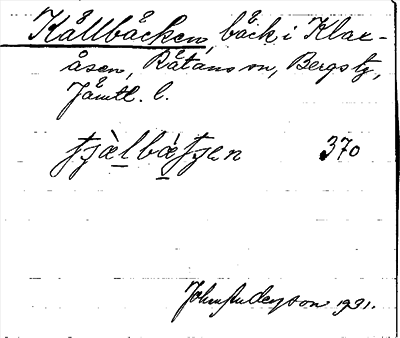 Källbäcken, bäck i Klax-
åsen, Rätans sn, Bergs tg,
Jämtl. l.
tjä̀lbä̀tjen 370
John Anderson 1931.